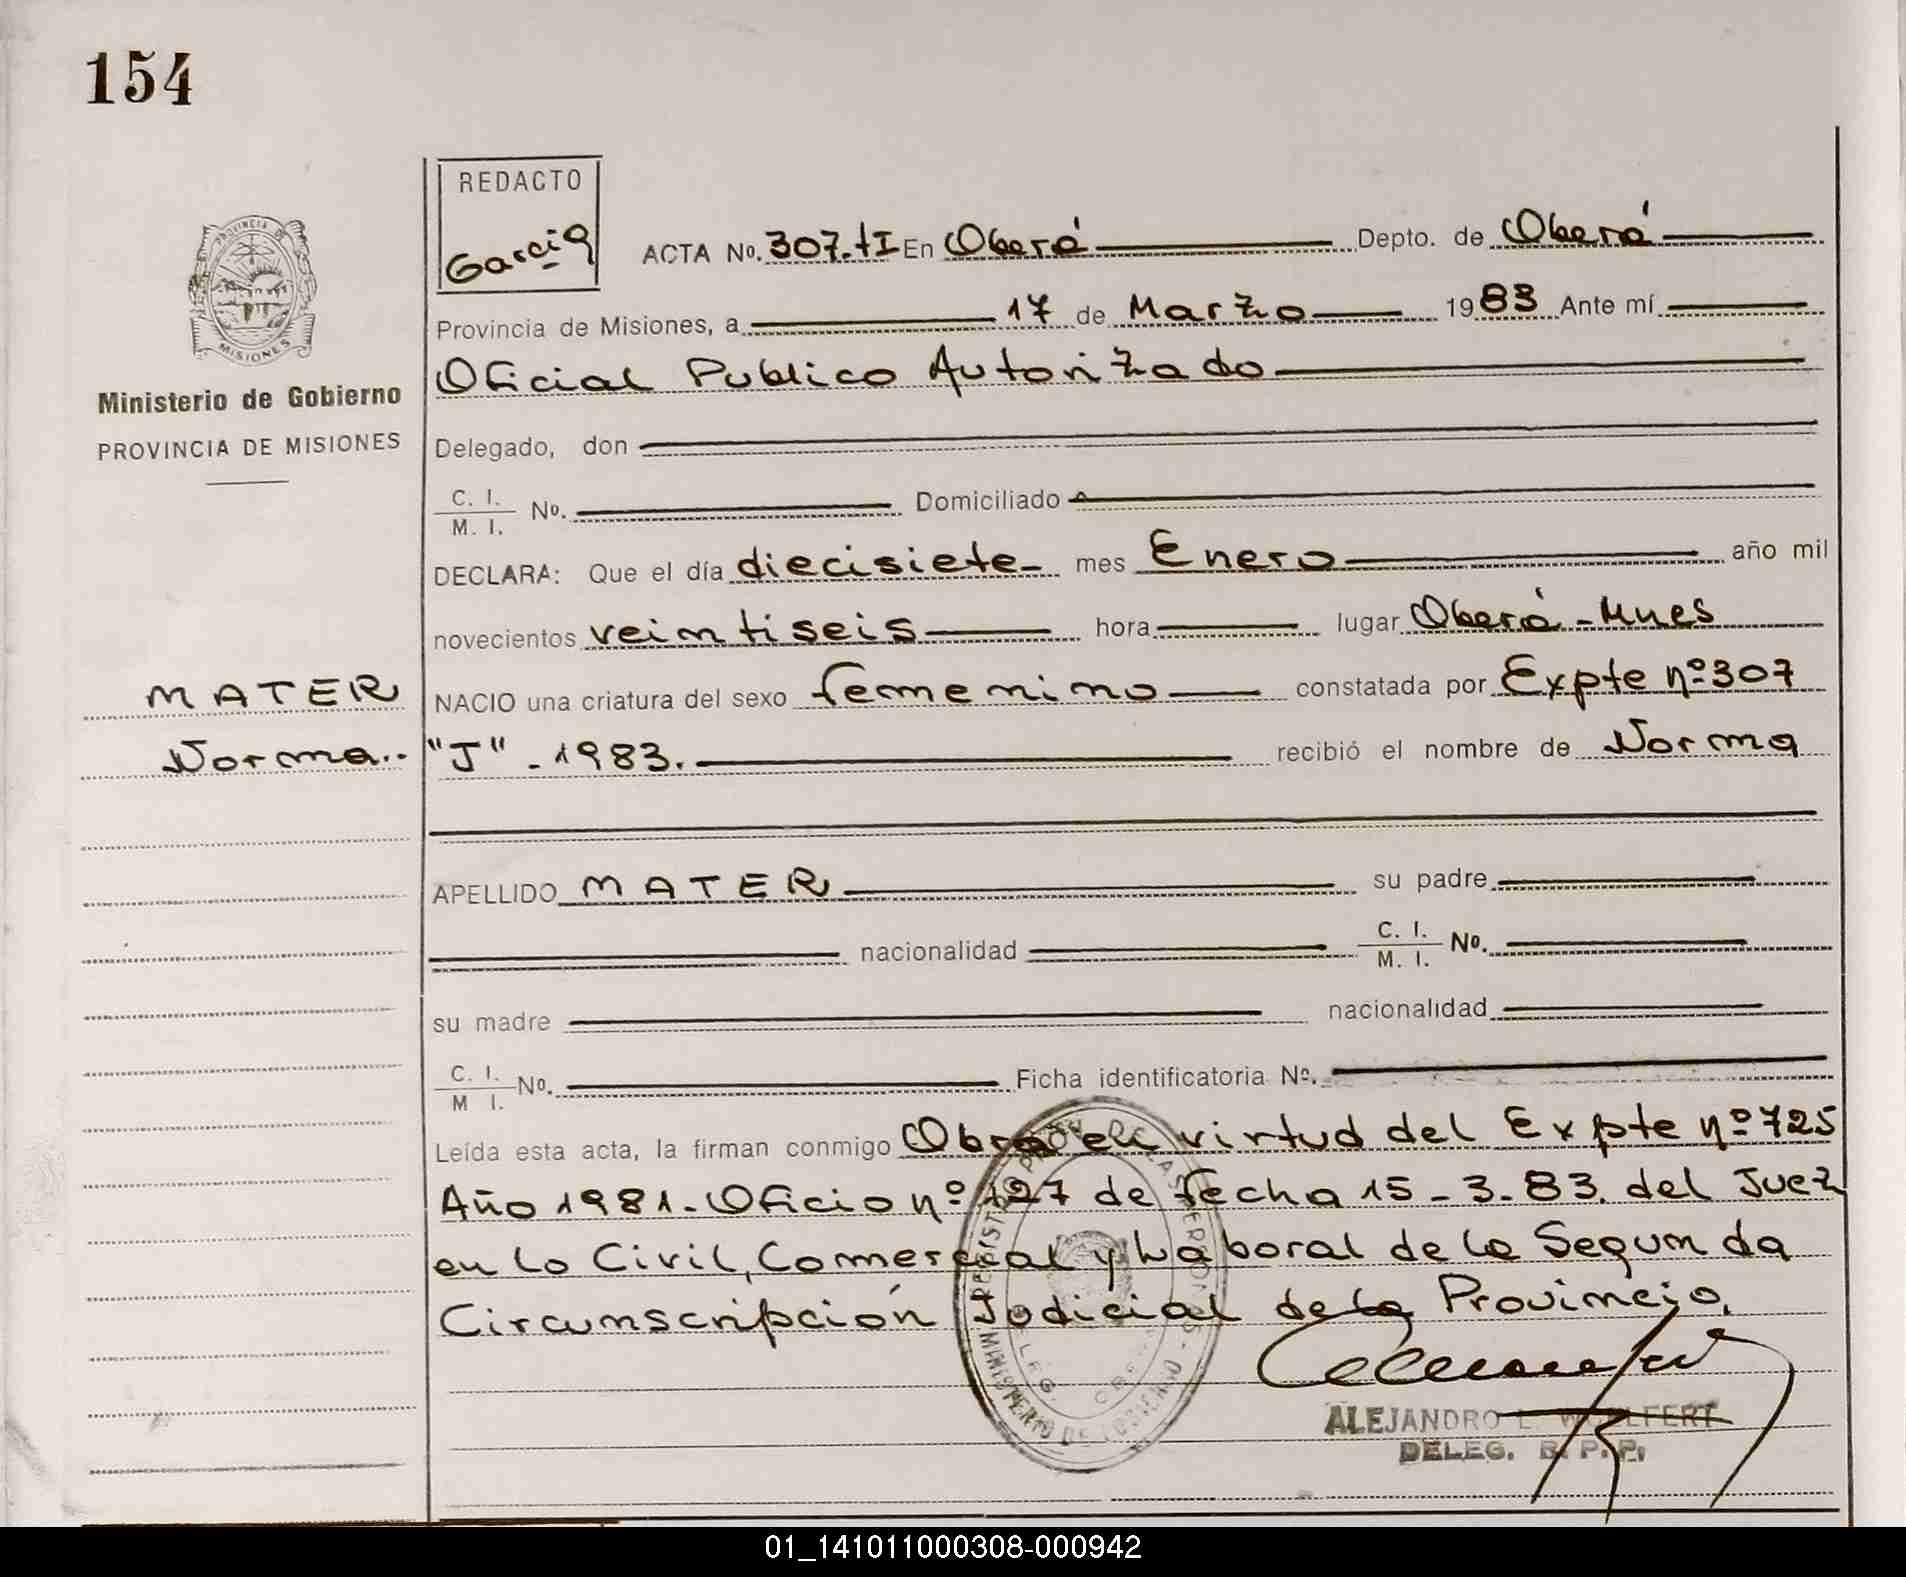 154
REDACTO
Garcia
ACTA No. 307.tI En Oberá Depto. de Oberá
Provincia de Misiones, a 17 de Marzo 1983 Ante mí
Oficial Publico Autorizado
Delegado, don
C. I.
M. I. No. Domiciliado
DECLARA: Que el día diecisiete mes Enero año mil
novecientos veintiseis hora lugar Oberá - Mnes
NACIO una criatura del sexo femenino constatada por Expte nº 307
"J" - 1983. recibió el nombre de Norma
APELLIDO MATER su padre
nacionalidad C. I.
M. I. No.
su madre nacionalidad
C. I.
M I. No. Ficha identificatoria No.
Leída esta acta, la firman conmigo Obra en virtud del Expte nº 725
Año 1981. Oficio nº 127 de fecha 15-3-83. del Juez
en lo Civil, Comercial y Laboral de la Segunda
Circunscripción Judicial de la Provincia.
ALEJANDRO
DELEG. R. P. P.
PROVINCIA DE
MISIONES
Ministerio de Gobierno
PROVINCIA DE MISIONES
MATER
Norma..
MINISTERIO DE GOBIERNO
01_141011000308-000942